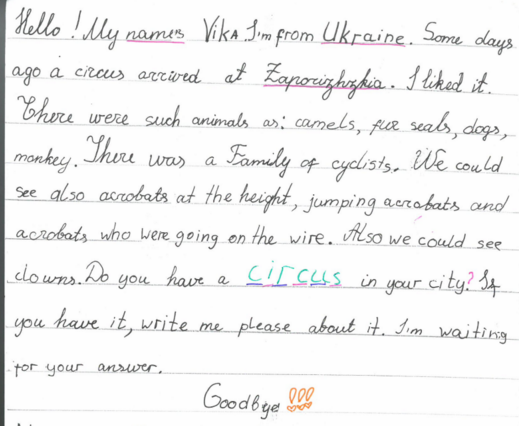 Hello! My name's Vika I'm from Ukraine. Some days
ago a circus arrived at Zaporizhzhia. I liked it.
There were such animals as: camels, fur seals, dogs,
monkey. There was a Family of cyclists. We could
see also acrobats at the height, jumping acrobats and
acrobats who were going on the wire. Also we could see
clowns. Do you have a circus in your city? If
you have it, write me please about it. I'm waiting
for your answer.
Goodbye !!!